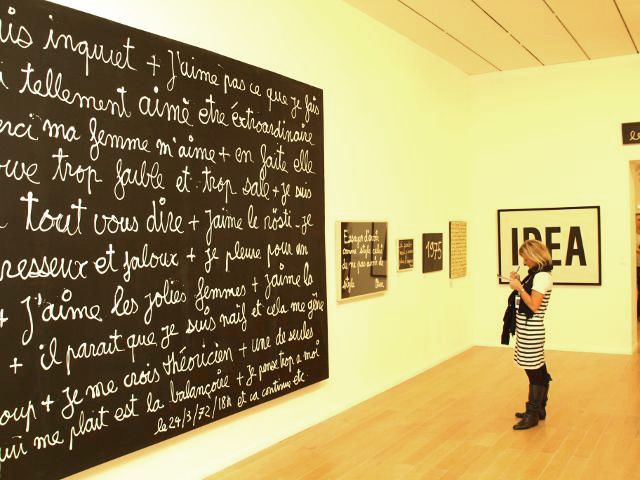 is inquiet + j'aime pas ce que je fais
i tellement aimé etre éxtraordinaire
erci ma femme m'aime + en faite elle
ouve trop faible et trop sale + je suis
tout vous dire + j'aime le rösti - je
resseux et jaloux + je pleure pour un
+ j'aime les jolies femmes + j'aime la
+ il parait que je suis naïf et cela me gêne
oup + je me crois théoricien + une de seules
qui me plait est la balançoire + je pense trop a moi
le 24/3/72/18H et ca continue etc.
Essayer d'avoir
comme style celui
de ne pas avoir de
style
Ben
1975
IDEA